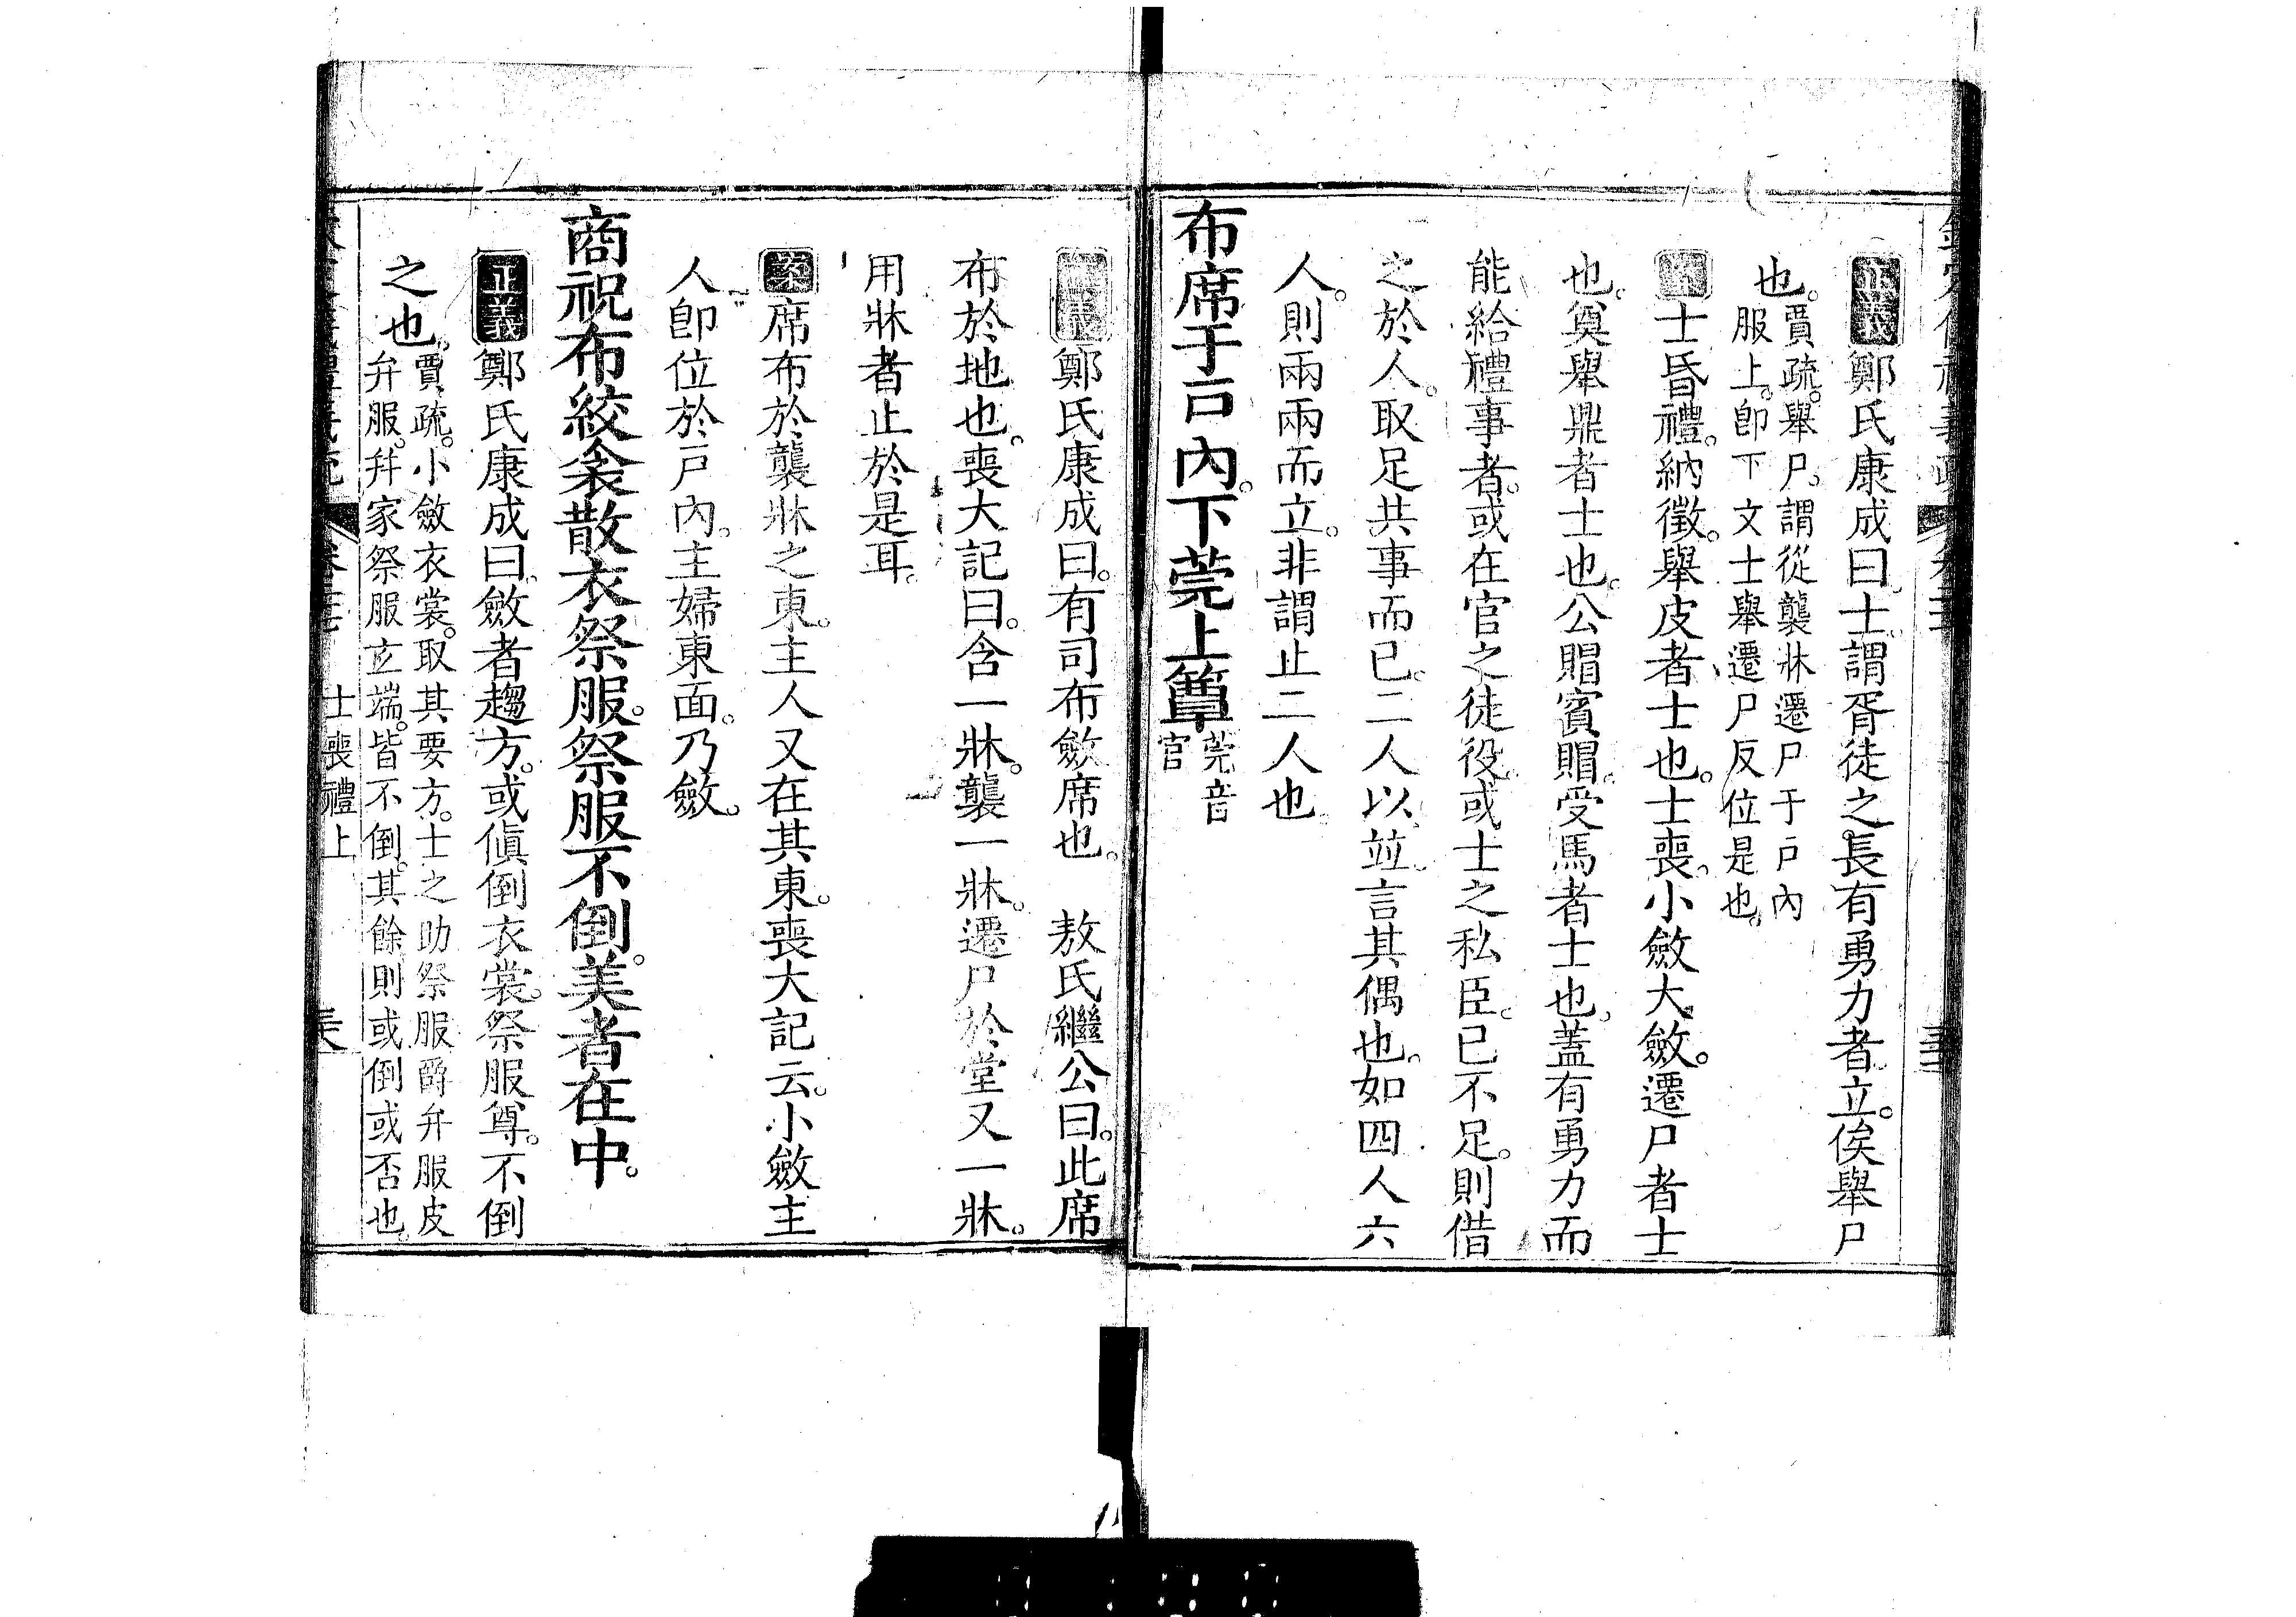 正義鄭氏康成曰士謂胥徒之長有勇力者立。俟舉尸
也。賈疏。舉尸。謂從襲牀遷尸于戶內
服上。卽下文士舉遷尸反位是也。
案士昏禮。納徵。舉皮者士也。士喪。小斂大斂。遷尸者士
也。奠舉鼎者士也。公賵賓賵。受馬者士也。蓋有勇力而
能給禮事者。或在官之徒役。或士之私臣。已不足。則借
之於人。取足共事而已。二人以竝言其偶也。如四人六
人。則兩兩而立。非謂止二人也。
布席于戶內。下莞上簟莞音
官
正義鄭氏康成曰。有司布斂席也。 敖氏繼公曰。此席
布於地也。喪大記曰。含一牀。襲一牀。遷尸於堂又一牀。
用牀者止於是耳。
案席布於襲牀之東。主人又在其東。喪大記云。小斂主
人卽位於戶內。主婦東面。乃斂。
商祝布絞衾散衣祭服。祭服不倒。美者在中。
正義鄭氏康成曰。斂者趨方。或傎倒衣裳。祭服尊。不倒
之也。賈疏。小斂衣裳。取其要方。士之助祭服爵弁服皮
弁服。幷家祭服玄端。皆不倒。其餘則或倒或否也。
士喪禮上